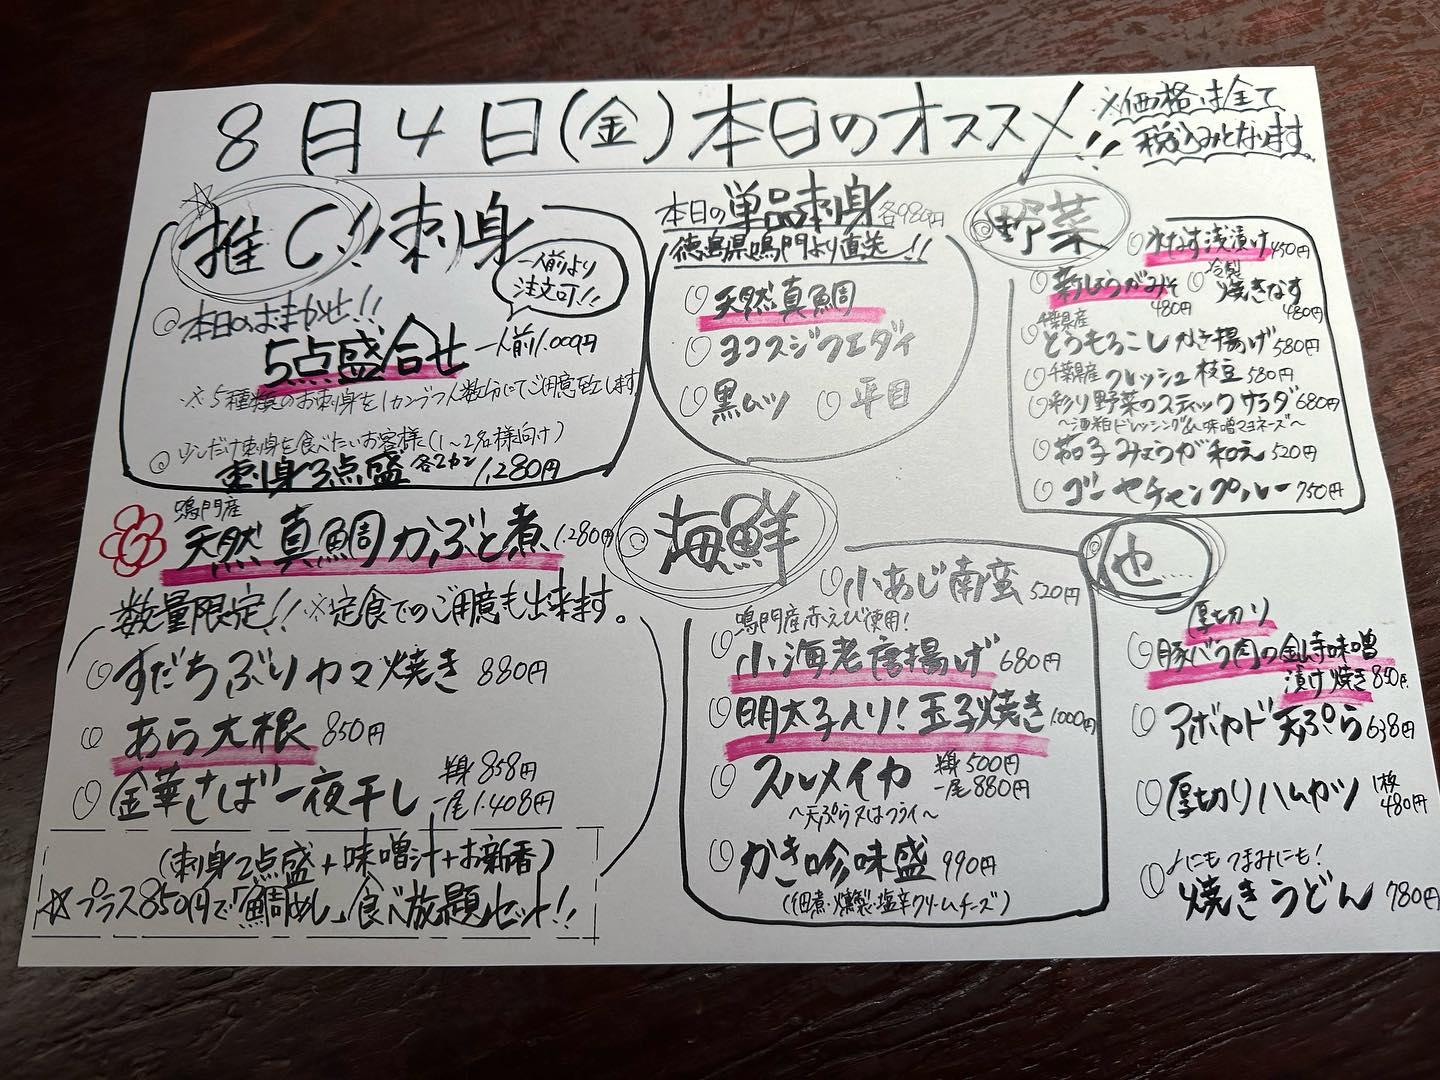 8月4日(金)本日のオススメ!!
※価格は全て
税込みとなります
推し!!刺身
一人前より
注文可!!
◎本日のおまかせ!!
5点盛合せ 一人前1.000円
※5種類のお刺身を1カンづつ人数分にてご用意致します
◎少しだけ刺身を食べたいお客様に(1〜2名様向け)
刺身3点盛 各2カン 1,280円
本日の単品刺身 各980円
徳島県鳴門より直送!!
◎天然真鯛
◎ヨコスジフエダイ
◎黒ムツ ◎平目
◎野菜
◎水なす浅漬け 450円
◎新しょうがみそ 480円
◎冷製 焼きなす 480円
千葉県産
◎とうもろこしかき揚げ 580円
◎千葉県産 フレッシュ枝豆 580円
◎彩り野菜のスティックサラダ 680円
〜酒粕ドレッシング&味噌マヨネーズ〜
◎茄子みょうが和え 520円
◎ゴーヤチャンプルー 750円
鳴門産
天然真鯛かぶと煮 1,280円
数量限定!!※定食でのご用意も出来ます。
◎すだちぶりカマ焼き 880円
◎あら大根 850円
◎金華さば一夜干し 半身 858円
一尾 1.408円
(刺身2点盛+味噌汁+お新香)
☆プラス850円で「鯛めし」食べ放題セット!!
◎海鮮
◎小あじ南蛮 520円
鳴門産赤えび使用!
◎小海老唐揚げ 680円
◎明太子入り!玉子焼き 1.000円
◎スルメイカ 半身 500円
一尾 880円
〜天ぷら又はフライ〜
◎かき珍味盛 990円
(佃煮・燻製・塩辛クリームチーズ)
◎他
厚切り
◎豚バラ肉の金山寺味噌
漬け焼き 850円
◎アボカド天ぷら 638円
◎厚切りハムカツ 1枚 480円
◎〆にもつまみにも!
焼きうどん 780円